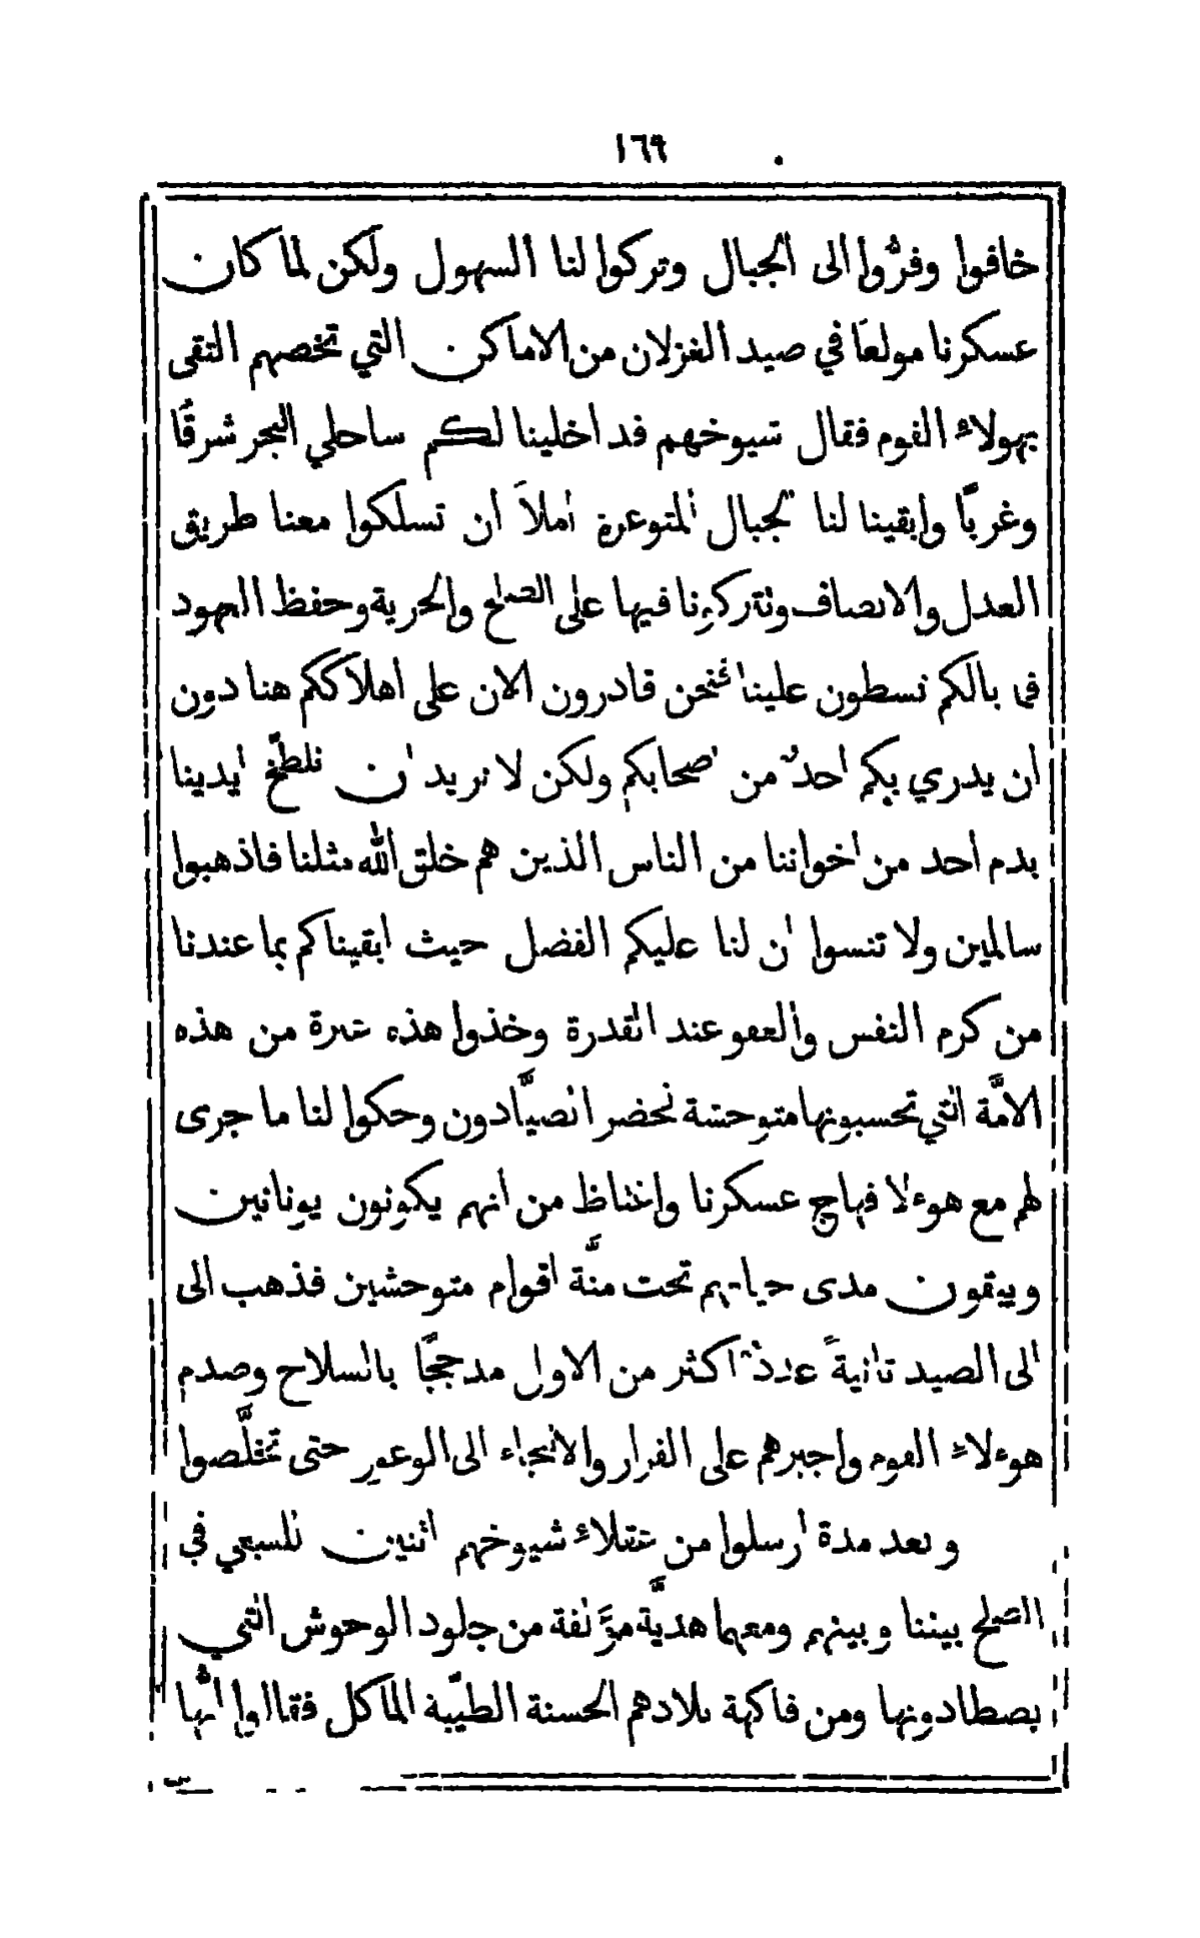 ١٦٩
خافوا وفرُّوا الى الجبال وتركوا لنا السهول ولكن لما كان
عسكرنا مولعًا في صيد الغزلان من الاماكن التي تخصهم التقى
بهولاء القوم فقال شيوخهم قد اخلينا لكم ساحلي البحر شرقًا
وغربًا وابقينا لنا الجبال المتوعرة املاً ان تسلكوا معنا طريق
العدل والانصاف ونتركونا فيها على الصلح والحرية وحفظ العهود
فما بالكم تسطون علينا فنحن قادرون الان على اهلاككم هنا دون
ان يدري بكم احدٌ من اصحابكم ولكن لا نريد ان نلطّخ ايدينا
بدم احد من اخواننا من الناس الذين هم خلق الله مثلنا فاذهبوا
سالمين ولا تنسوا ان لنا عليكم الفضل حيث ابقيناكم بما عندنا
من كرم النفس والعفو عند القدرة وخذوا هذه عبرة من هذه
الامَّة التي تحسبونها متوحشة فحضر الصيَّادون وحكوا لنا ما جرى
لهم مع هوءلا فهاج عسكرنا واغتاظ من انهم يكونون يونانين
ويبقون مدى حياتهم تحت منَّة اقوام متوحشين فذهب الى
الى الصيد ثانيةً عددًا اكثر من الاول مدججًا بالسلاح وصدم
هوءلاء القوم واجبرهم على الفرار والالتجاء الى الوعور حتى تخلَّصوا
وبعد مدة ارسلوا من عقلاء شيوخهم اثنين للسعي في
الصلح بيننا وبينهم ومعهما هديَّة موَّلفة من جلود الوحوش التي
يصطادونها ومن فاكهة بلادهم الحسنة الطيّبة الماكل فقالوا انَّها